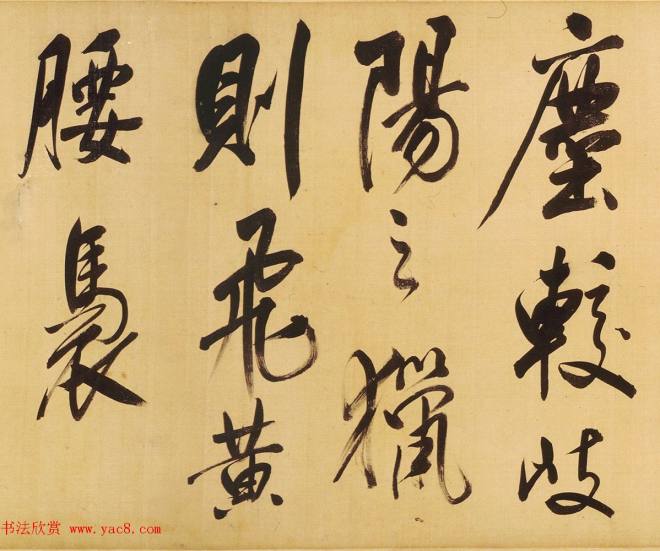 塵較岐
陽之獵
則飛黃
腰褭
书法欣赏 www.yac8.com